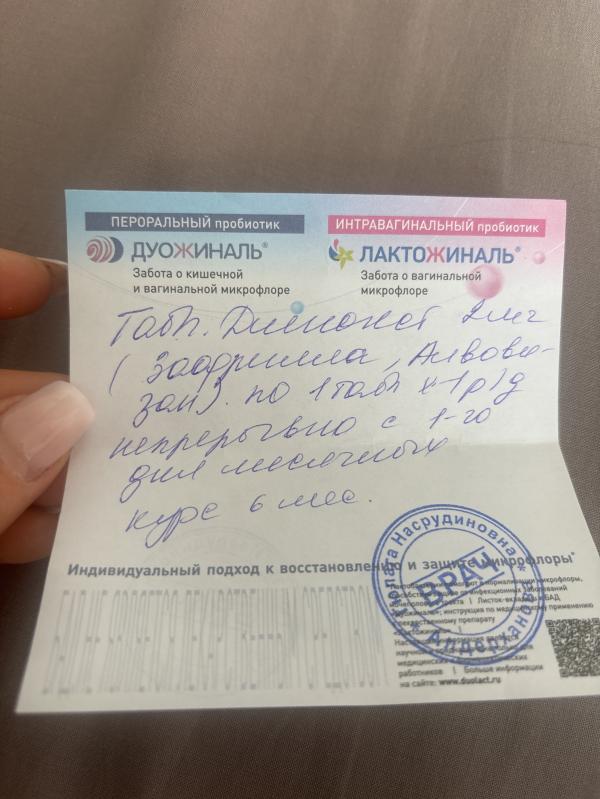 ПЕРОРАЛЬНЫЙ пробиотик
ДУОЖИНАЛЬ®
Забота о кишечной
и вагинальной микрофлоре
ИНТРАВАГИНАЛЬНЫЙ пробиотик
ЛАКТОЖИНАЛЬ®
Забота о вагинальной
микрофлоре
Табл. Диеножет 2 мг
(Зафрилла, Алвови-
зан) по 1 табл х 1 р/д
непрерывно с 1-го
дня месячных
курс 6 мес.
Индивидуальный подход к восстановлению и защите микрофлоры*
Насрудиновна
ВРАЧ
работников | Больше информации
на сайте: www.duolact.ru